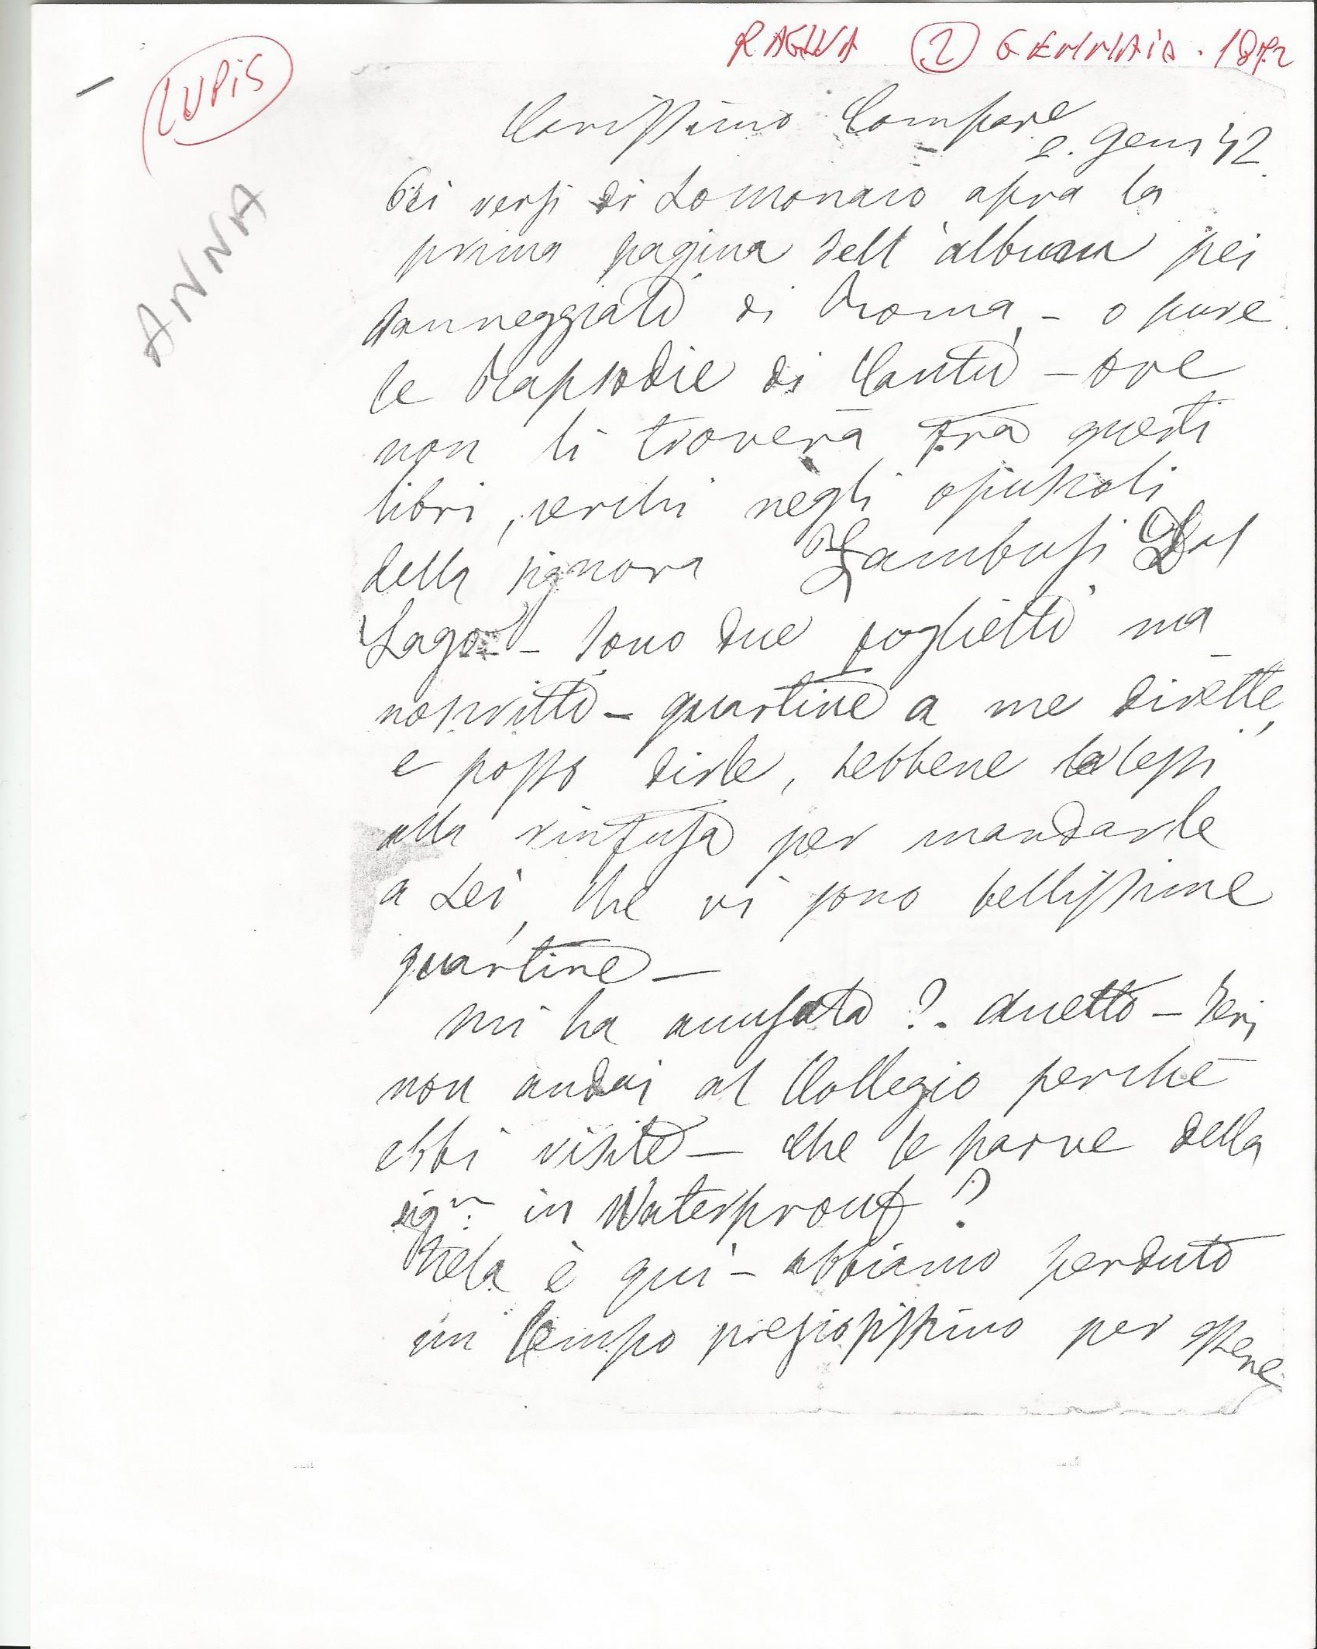 RAGUSA 2 GENNAIO. 1872
LUPIS
ANNA
Carissimo Compare
2. Genn 72
Dei versi di Lomonaco apra la
prima pagina dell'album pei
danneggiati di Roma, – o pure
le Rapsodie di Cantù – ove
non li troverà fra questi
libri, cerchi negli opuscoli
della signora Zambusi Dal
Lago – sono due foglietti ma
noscritti – quartine a me dirette,
e posso dirle, sebbene la lessi
alla rinfusa per mandarle
a Lei, che vi sono bellissime
quartine –
Mi ha accusato ?. Anetto – Ieri,
non andai al Collegio perchè
ebbi visite – Che le parve della
sigra: in Waterprouf ?
Mela è quì – abbiamo perduto
un tempo preziosissimo per